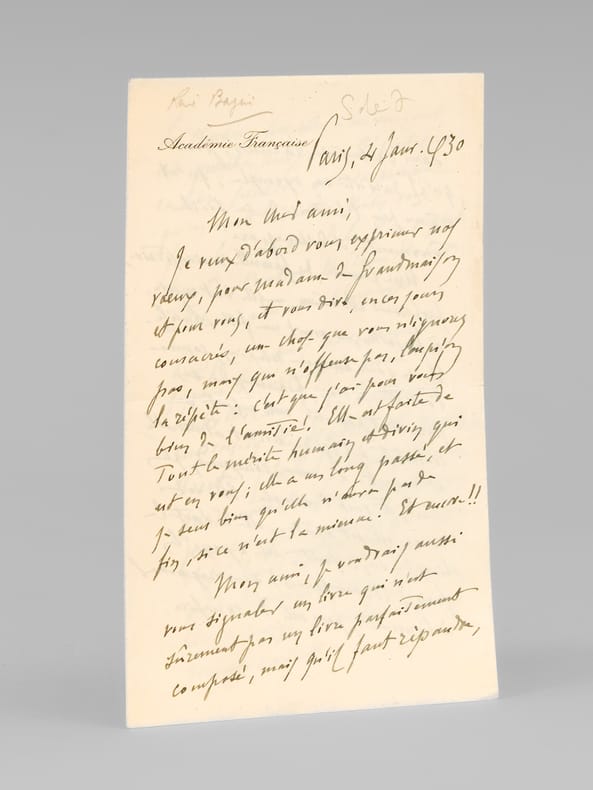 René Bazin
Académie Française
Paris, 4 Janv. 1930
Mon cher ami,
Je veux d'abord vous exprimer nos
vœux, pour Madame de Grandmaison
et pour vous, et vous dire, en ces jours
consacrés, une chose que vous n'ignorez
pas, mais qui n'offense pas, lorsqu'on
la répète : c'est que j'ai pour vous
bien de l'amitié. Elle est faite de
tout le mérite humain et divin qui
est en vous ; elle a un long passé, et
je sens bien qu'elle n'aura pas de
fin, si ce n'est la mienne. Et encore !!
Mon ami, je voudrais aussi
vous signaler un livre qui n'est
sûrement pas un livre parfaitement
composé, mais qu'il faut répandre,